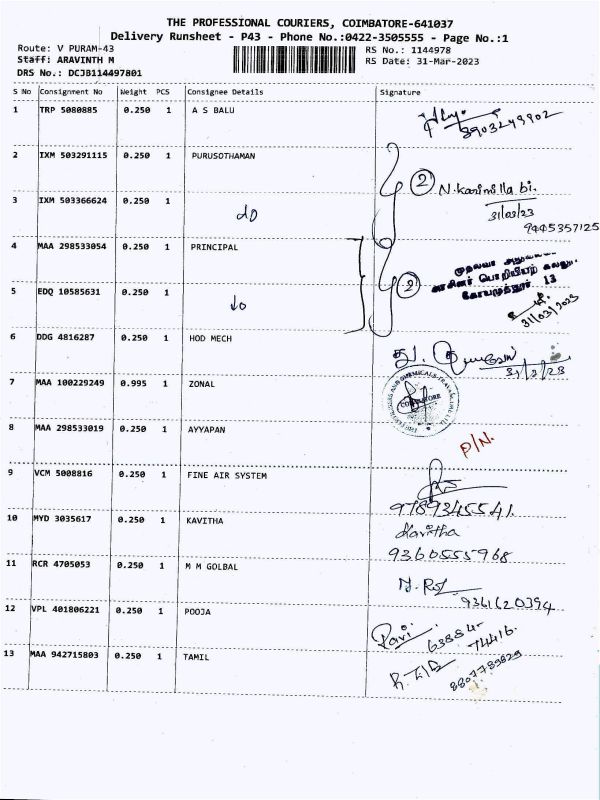 THE PROFESSIONAL COURIERS, COIMBATORE-641037
Delivery Runsheet - P43 - Phone No.:0422-3505555 - Page No.:1
Route: V PURAM-43 RS No.: 1144978
Staff: ARAVINTH M RS Date: 31-Mar-2023
DRS No.: DCJB114497801
S No Consignment No Weight PCS Consignee Details Signature
1 TRP 5080885 0.250 1 A S BALU
8903249902
2 IXM 503291115 0.250 1 PURUSOTHAMAN
2 N. karimilla bi.
3 IXM 503366624 0.250 1 do
31/03/23
9445357125
4 MAA 298533054 0.250 1 PRINCIPAL
2
5 EDQ 10585631 0.250 1 do
31/03/2023
6 DDG 4816287 0.250 1 HOD MECH
31/3/23
7 MAA 100229249 0.995 1 ZONAL
COIMBATORE
8 MAA 298533019 0.250 1 AYYAPAN
P/N.
9 VCM 5008816 0.250 1 FINE AIR SYSTEM
9789345541.
10 MYD 3035617 0.250 1 KAVITHA
Kavitha
9360555968
11 RCR 4705053 0.250 1 M M GOLBAL
9361620394
12 VPL 401806221 0.250 1 POOJA
Ravi 63884-
74416.
13 MAA 942715803 0.250 1 TAMIL
8807789829